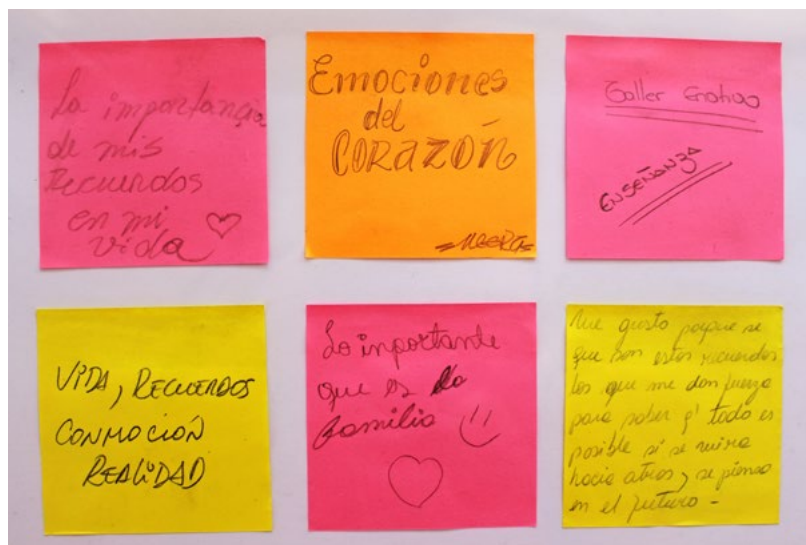 La importancia
de mis
Recuerdos
en mi
vida
Emociones
del
CORAZÓN
Taller
ENSEÑANZA
VIDA, RECUERDOS
CONMOCIÓN
REALIDAD
Lo inportante
que es la
familia
Me gusto porque se
que son estos recuerdos
los que me dan fuerza
para saber q' todo es
posible si se mira
hacia atras y se piensa
en el futuro -